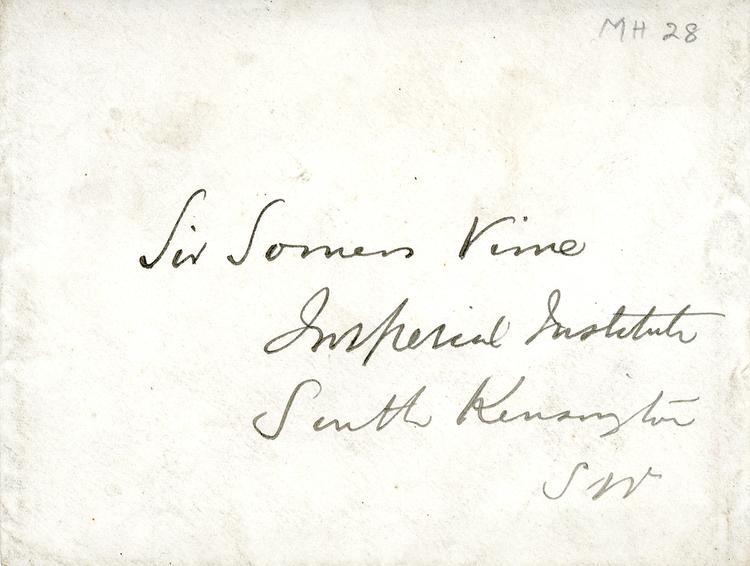 MH 28
Sir Somers Vine
Imperial Institute
South Kensington
SW